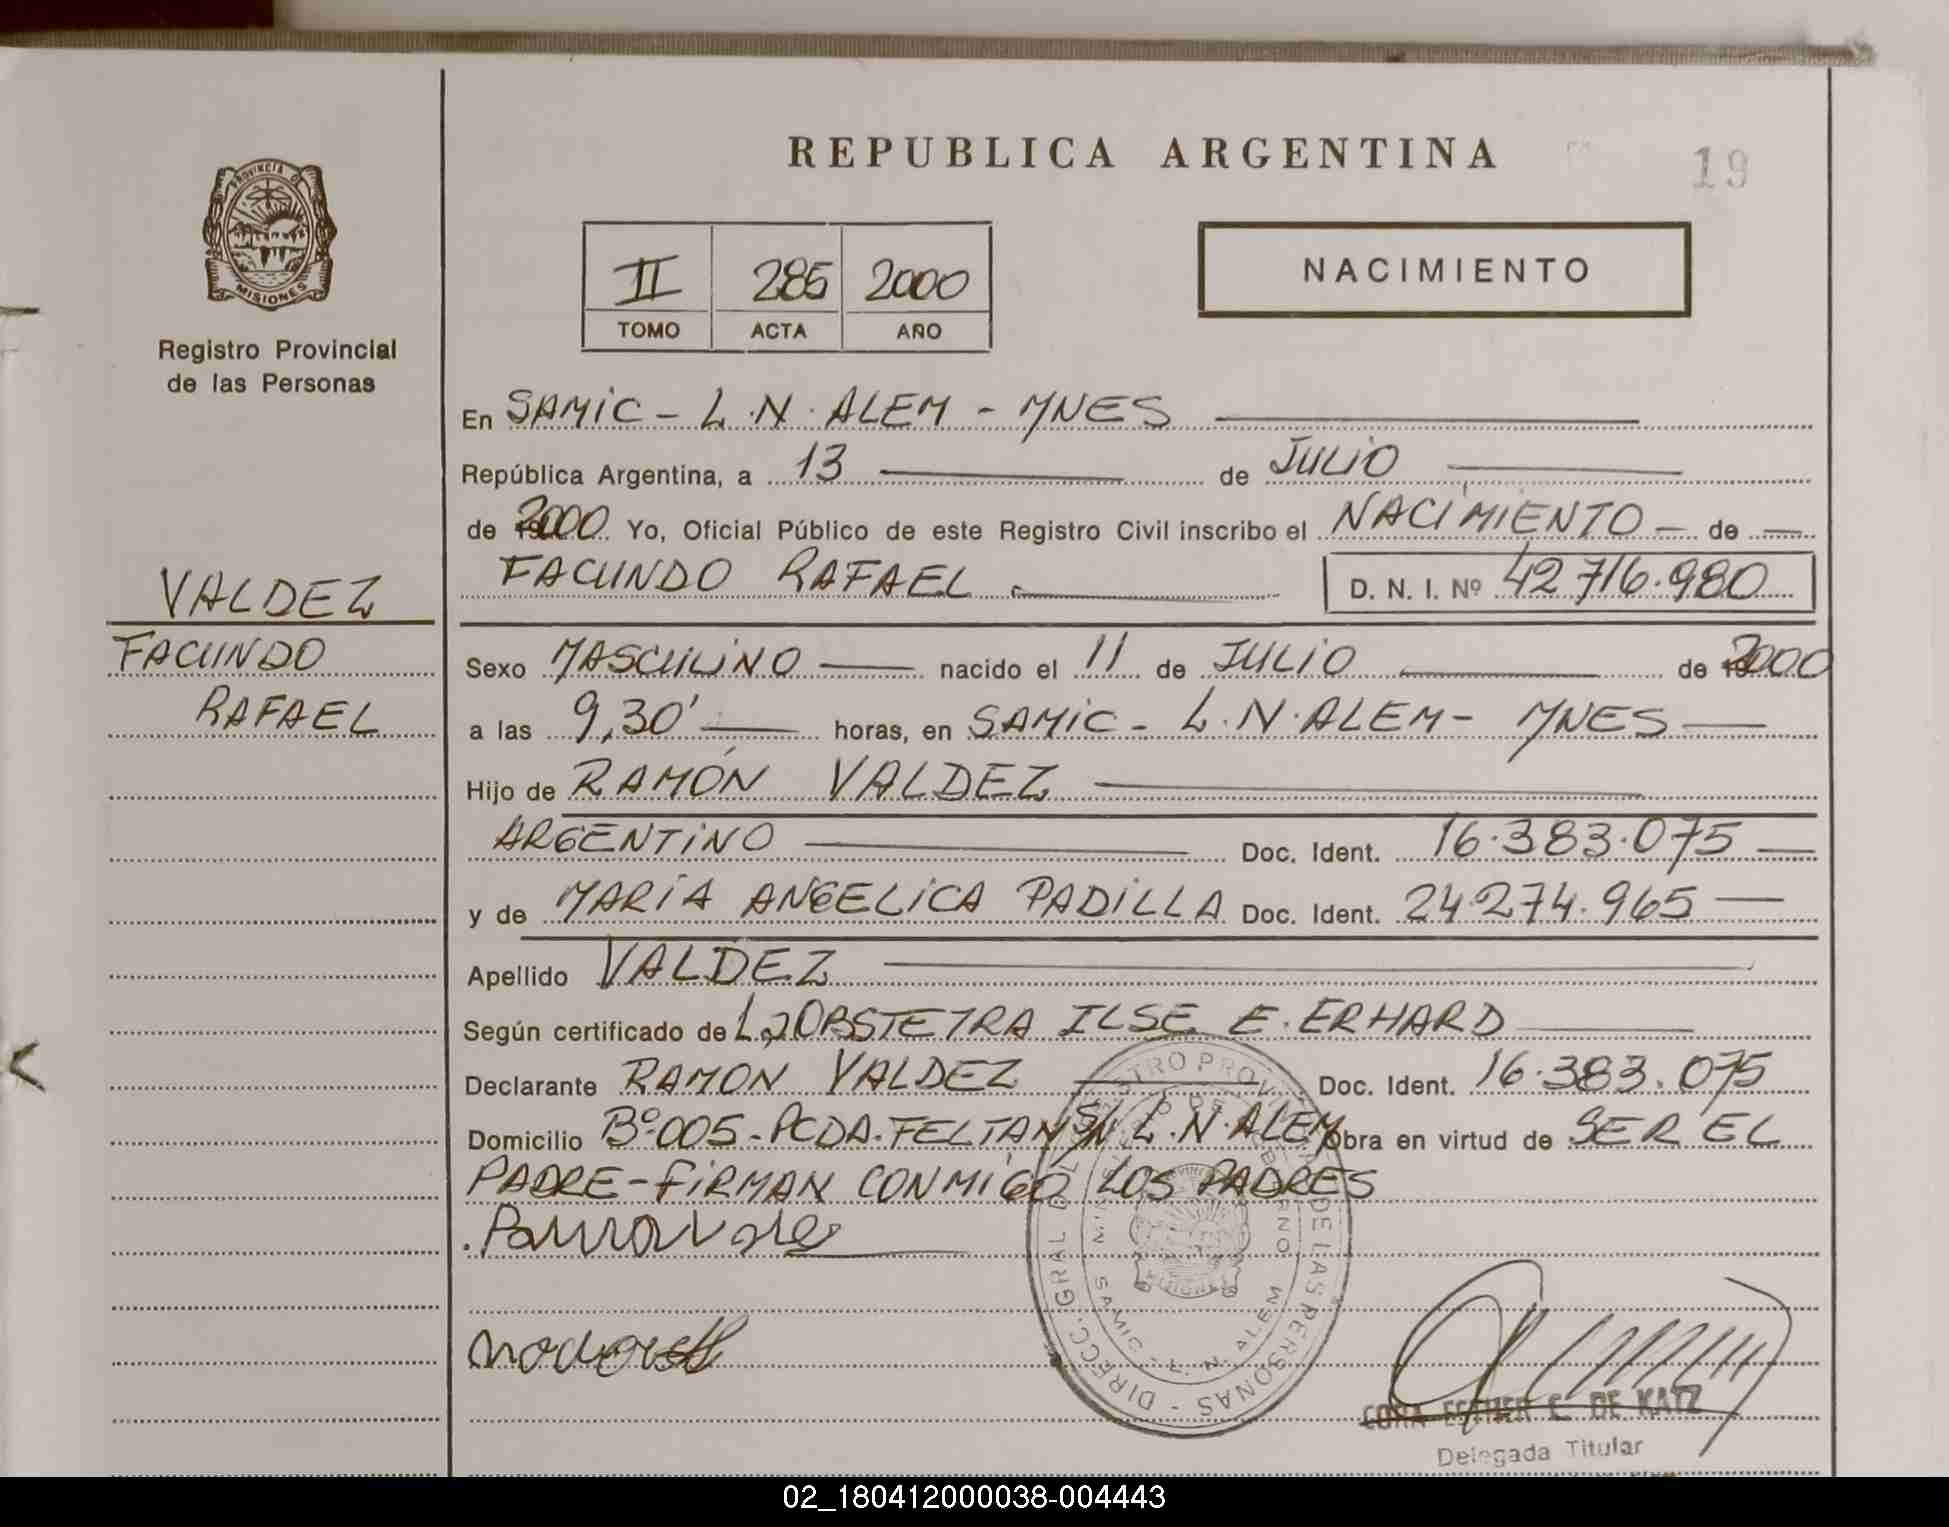 REPUBLICA ARGENTINA
19
PROVINCIA D MISIONES
Registro Provincial
de las Personas
II 285 2000
TOMO ACTA AÑO
NACIMIENTO
En SAMIC - L.N. ALEM - MNES
República Argentina, a 13 de JULIO
de 2000 Yo, Oficial Público de este Registro Civil inscribo el NACIMIENTO - de
FACUNDO RAFAEL D. N. I. Nº 42 716.980
VALDEZ
FACUNDO
RAFAEL
Sexo MASCULINO nacido el 11 de JULIO de 2000
a las 9,30' horas, en SAMIC - L.N. ALEM - MNES
Hijo de RAMÓN VALDEZ
ARGENTINO Doc. Ident. 16.383.075
y de MARÍA ANGELICA PADILLA Doc. Ident. 24.274.965
Apellido VALDEZ
Según certificado de La OBSTETRA ILSE E. ERHARD
Declarante RAMÓN VALDEZ Doc. Ident. 16.383.075
Domicilio Bº 005 - PCDA. FELTAN S/N L.N. ALEM Obra en virtud de SER EL
PADRE - FIRMAN CONMIGO LOS PADRES
DIREC. GRAL DEL REGISTRO PROVINCIAL DE LAS PERSONAS
SAMIC - L. N. ALEM
CORA ESTHER C. DE KATZ
Delegada Titular
02_180412000038-004443